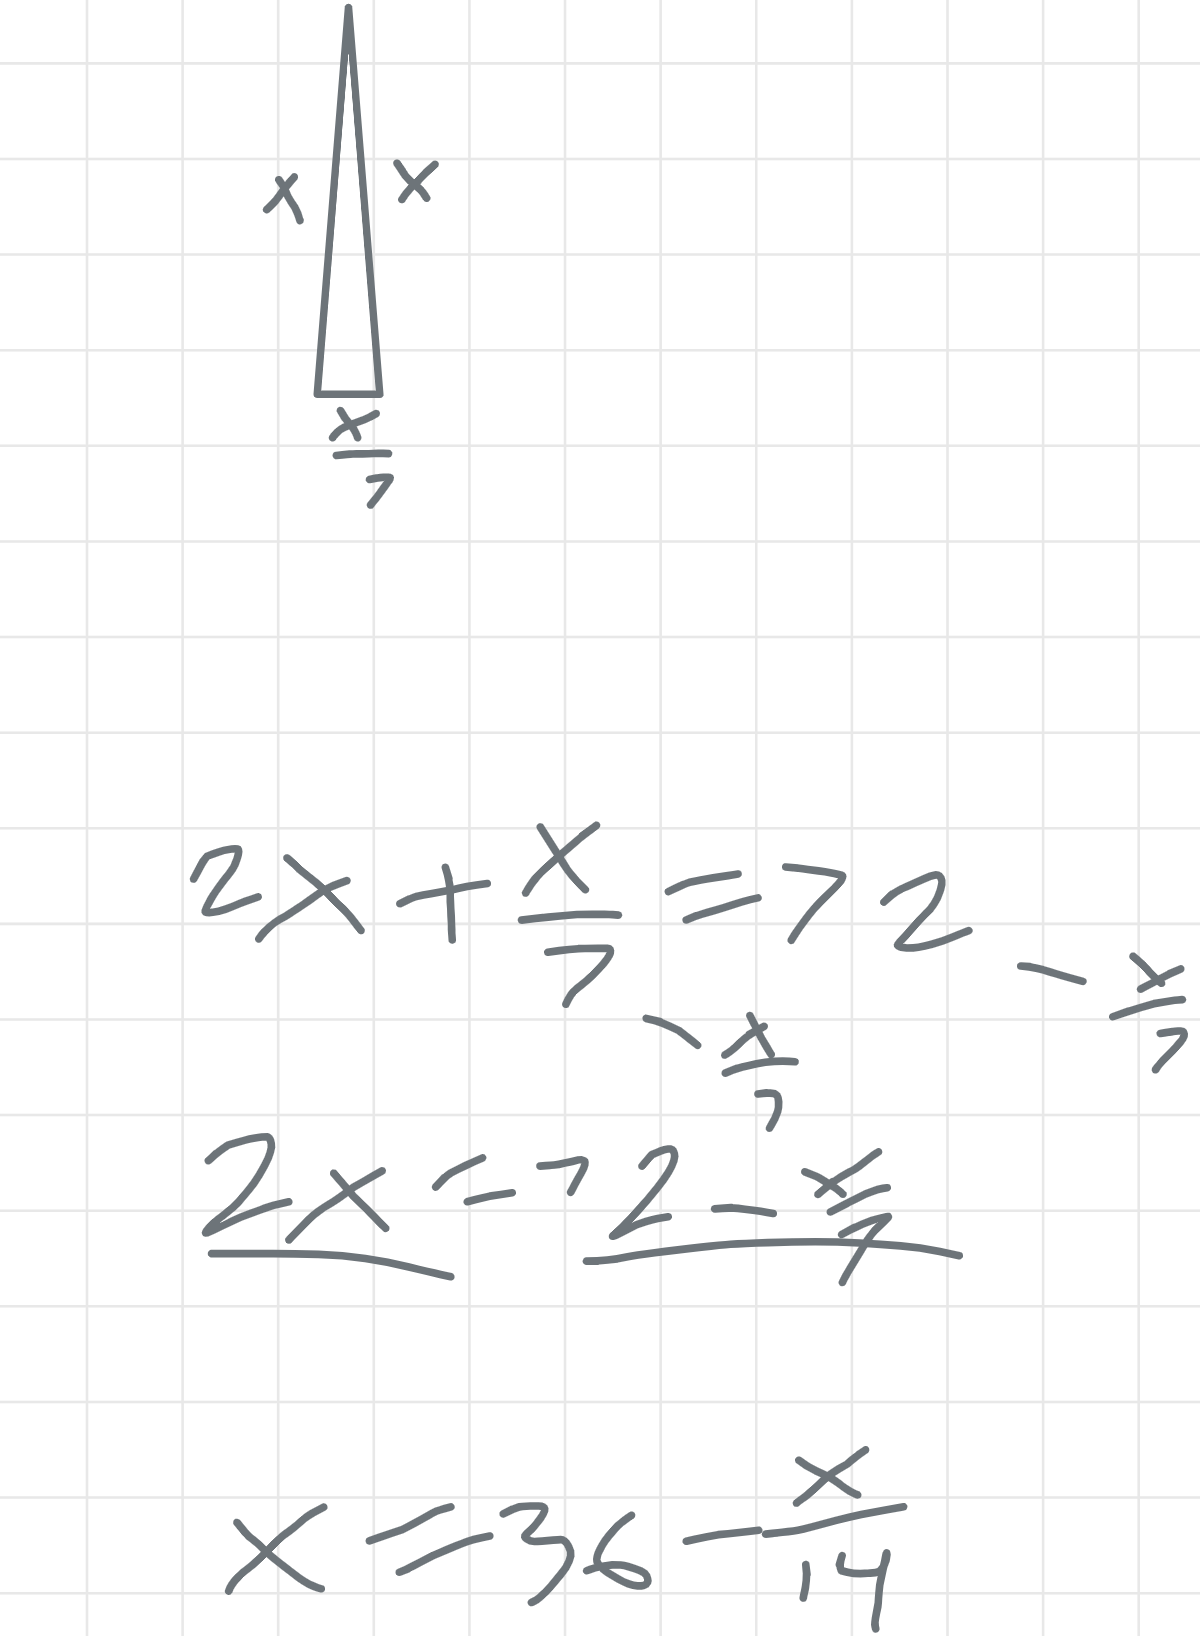 x x
x/7
2x + x/7 = 72
- x/7 - x/7
2x = 72 - x/7
x = 36 - x/14